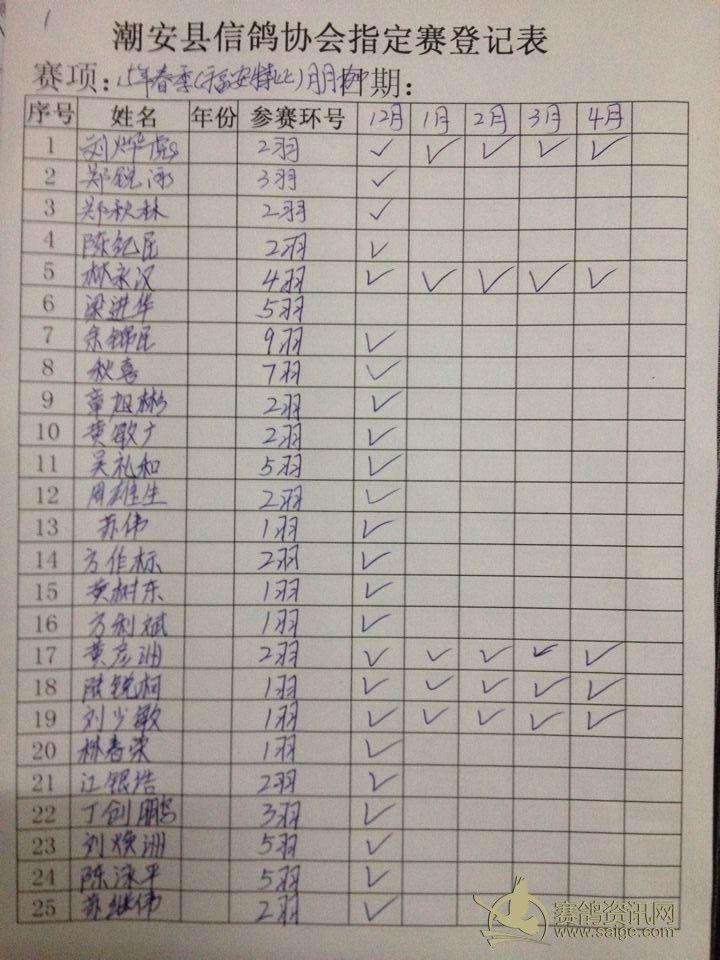 1
潮安县信鸽协会指定赛登记表
赛项：15年春季(福安特比) 日期：
序号 姓名 年份 参赛环号 12月 1月 2月 3月 4月
1 刘烨彪 2羽 ✓ ✓ ✓ ✓ ✓
2 郑锐 3羽 ✓
3 郑秋林 2羽 ✓
4 陈纪 2羽 ✓
5 林永汉 4羽 ✓ ✓ ✓ ✓ ✓
6 梁进华 5羽
7 余锦 9羽 ✓
8 秋喜 7羽 ✓
9 章旭彬 2羽 ✓
10 黄敏广 2羽 ✓
11 吴礼和 5羽 ✓
12 周雄生 2羽 ✓
13 苏伟 1羽 ✓
14 方作标 2羽 ✓
15 黄树东 1羽 ✓
16 方利斌 1羽 ✓
17 黄彦洲 2羽 ✓ ✓ ✓ ✓ ✓
18 陆锐柯 1羽 ✓ ✓ ✓ ✓ ✓
19 刘少敏 1羽 ✓ ✓ ✓ ✓ ✓
20 林春荣 1羽 ✓
21 江银浩 2羽 ✓
22 丁创鹏 3羽 ✓
23 刘焕洲 5羽 ✓
24 陈泳平 5羽 ✓
25 苏继伟 2羽 ✓
赛鸽资讯网
www.saige.com